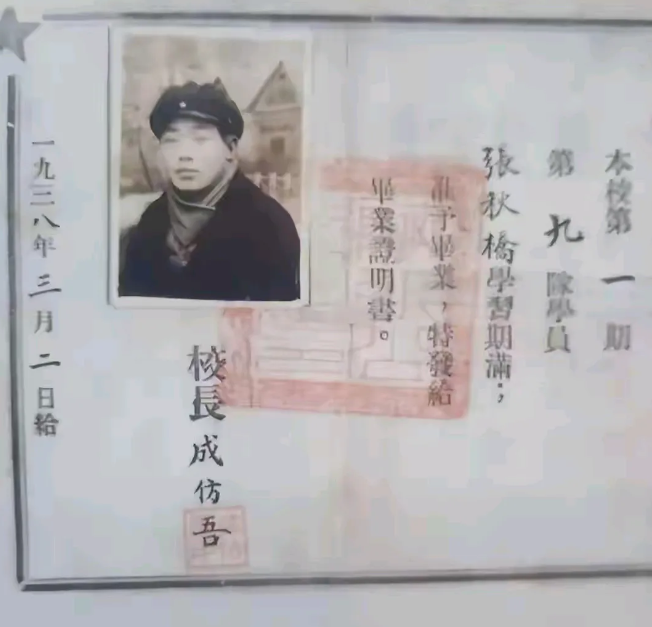 本校第一期
第九隊學員
張秋橋學習期滿，
准予畢業，特發給
畢業證明書。
校長成仿吾
一九三八年三月二日給